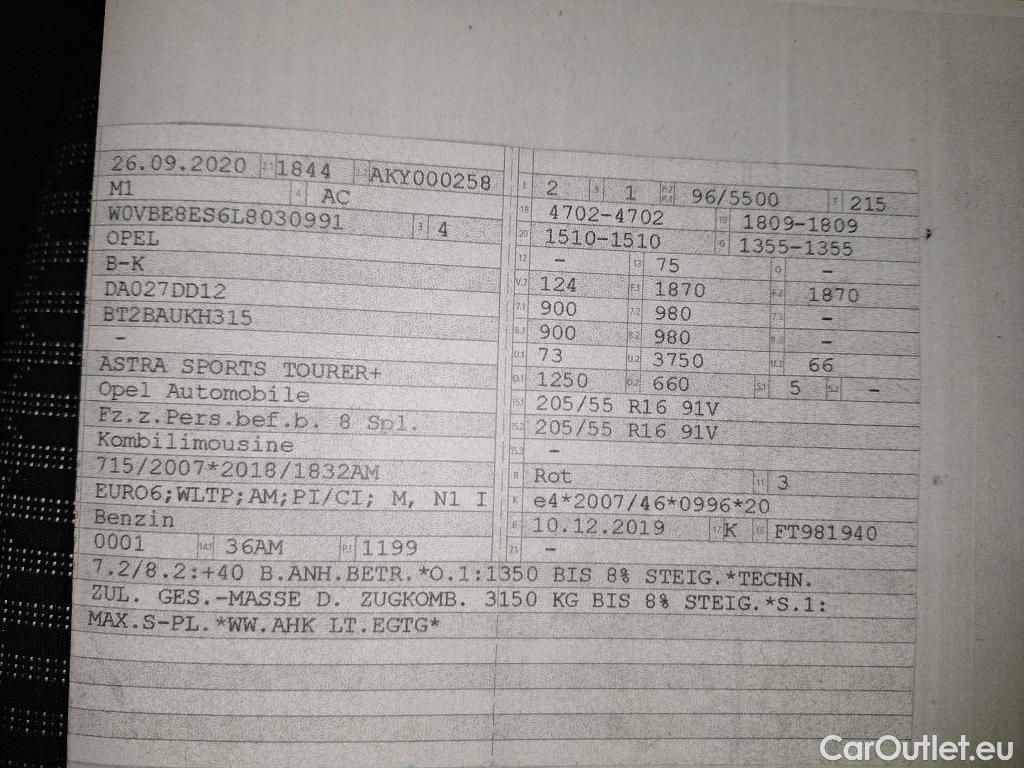 26.09.2020 2.1 1844 2.2 AKY000258
M1 4 AC
W0VBE8ES6L8030991 3 4
OPEL
B-K
DA027DD12
BT2BAUKH315
–
ASTRA SPORTS TOURER+
Opel Automobile
Fz.z.Pers.bef.b. 8 Spl.
Kombilimousine
715/2007*2018/1832AM
EURO6;WLTP;AM;PI/CI; M, N1 I
Benzin
0001 14.1 36AM P.1 1199
L 2 9 1 P.2 P.4 96/5500 T 215
18 4702–4702 19 1809–1809
20 1510–1510 G 1355–1355
12 – 13 75 Q –
V.7 124 F.1 1870 F.2 1870
7.1 900 7.2 980 7.3 –
8.1 900 8.2 980 8.3 –
U.1 73 U.2 3750 U.3 66
O.1 1250 O.2 660 S.1 5 S.2 –
15.1 205/55 R16 91V
15.2 205/55 R16 91V
15.3 –
R Rot 11 3
K e4*2007/46*0996*20
6 10.12.2019 17 K 16 FT981940
21 –
7.2/8.2:+40 B.ANH.BETR.*O.1:1350 BIS 8% STEIG.*TECHN.
ZUL. GES.-MASSE D. ZUGKOMB. 3150 KG BIS 8% STEIG.*S.1:
MAX.S-PL.*WW.AHK LT.EGTG*
CarOutlet.eu